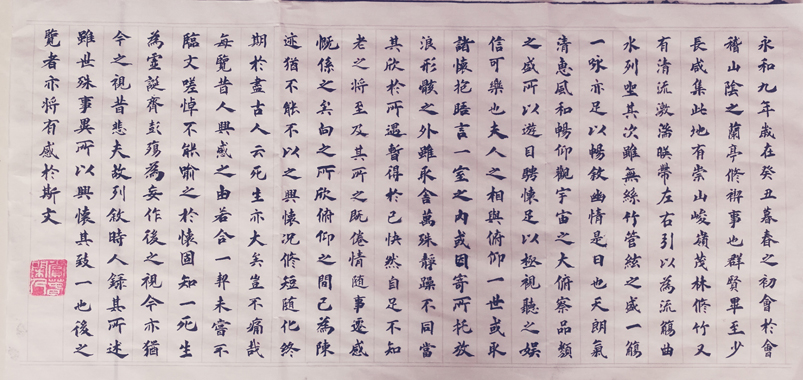 永和九年歲在癸丑暮春之初會於會
稽山陰之蘭亭脩禊事也群賢畢至少
長咸集此地有崇山峻嶺茂林脩竹又
有清流激湍暎帶左右引以為流觴曲
水列坐其次雖無絲竹管絃之盛一觴
一詠亦足以暢敘幽情是日也天朗氣
清惠風和暢仰觀宇宙之大俯察品類
之盛所以遊目騁懷足以極視聽之娛
信可樂也夫人之相與俯仰一世或取
諸懷抱晤言一室之內或因寄所托放
浪形骸之外雖取舍萬殊靜躁不同當
其欣於所遇暫得於己快然自足不知
老之將至及其所之既倦情隨事遷感
慨係之矣向之所欣俯仰之間已為陳
迹猶不能不以之興懷況脩短隨化終
期於盡古人云死生亦大矣豈不痛哉
每覽昔人興感之由若合一契未嘗不
臨文嗟悼不能喻之於懷固知一死生
為虛誕齊彭殤為妄作後之視今亦猶
今之視昔悲夫故列敘時人錄其所述
雖世殊事異所以興懷其致一也後之
覽者亦將有感於斯文